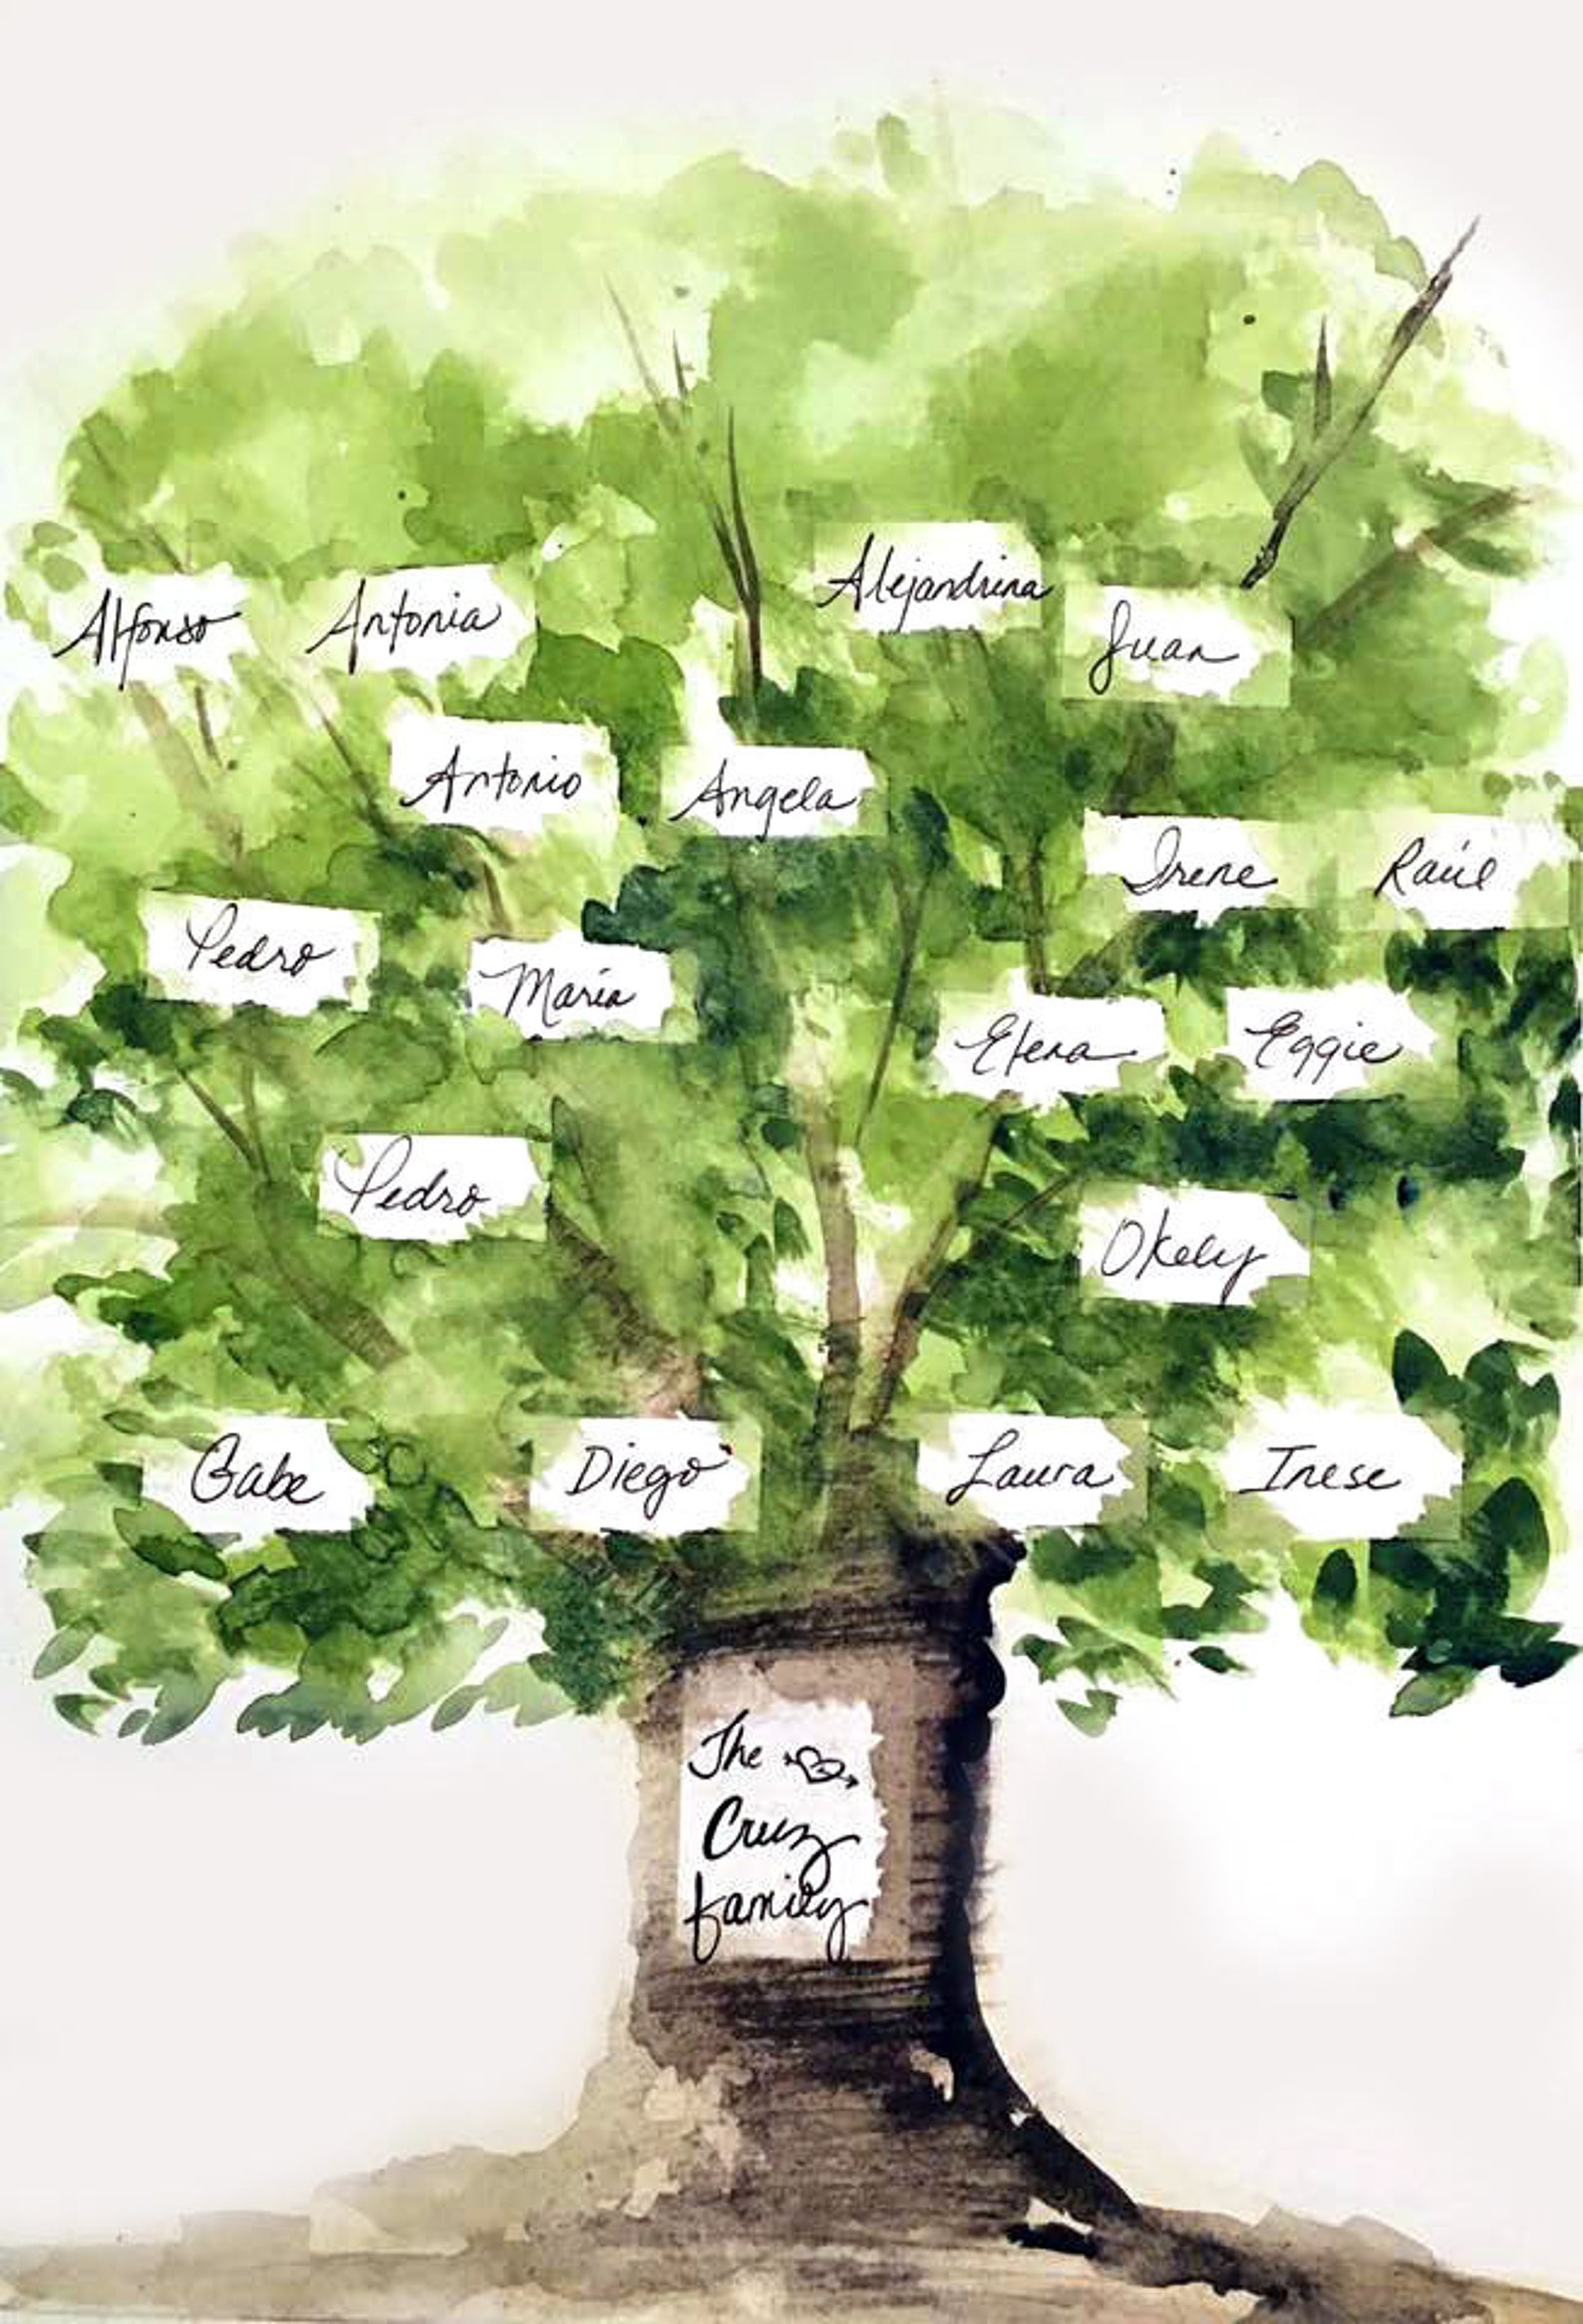 Alejandrina
Alfonso
Antonia
Juan
Antonio
Angela
Irene
Raúl
Pedro
María
Elena
Eggie
Pedro
Okely
Gabe
Diego
Laura
Inese
The
Cruz
family